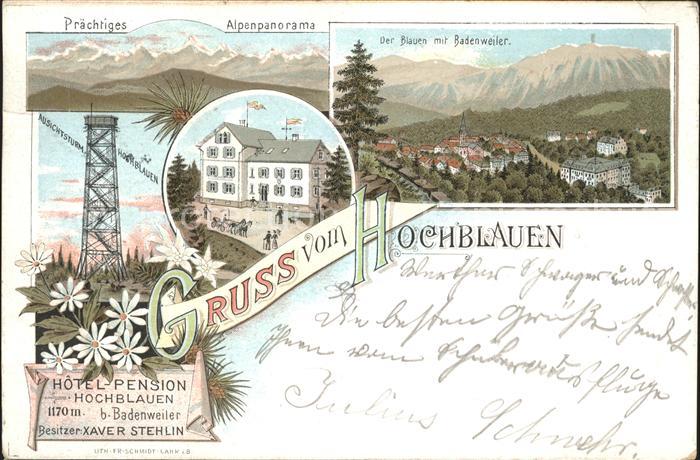 Prächtiges Alpenpanorama
Der Blauen mit Badenweiler.
AUSICHTSTURM HOCHBLAUEN
GRUSS vom HOCHBLAUEN
Werther Schwager und
Die besten Grüße sendet
Ihnen vom
Julius
HÔTEL-PENSION
HOCHBLAUEN
1170 m. b. Badenweiler
Besitzer: XAVER STEHLIN
LITH. FR. SCHMIDT. LAHR i/B